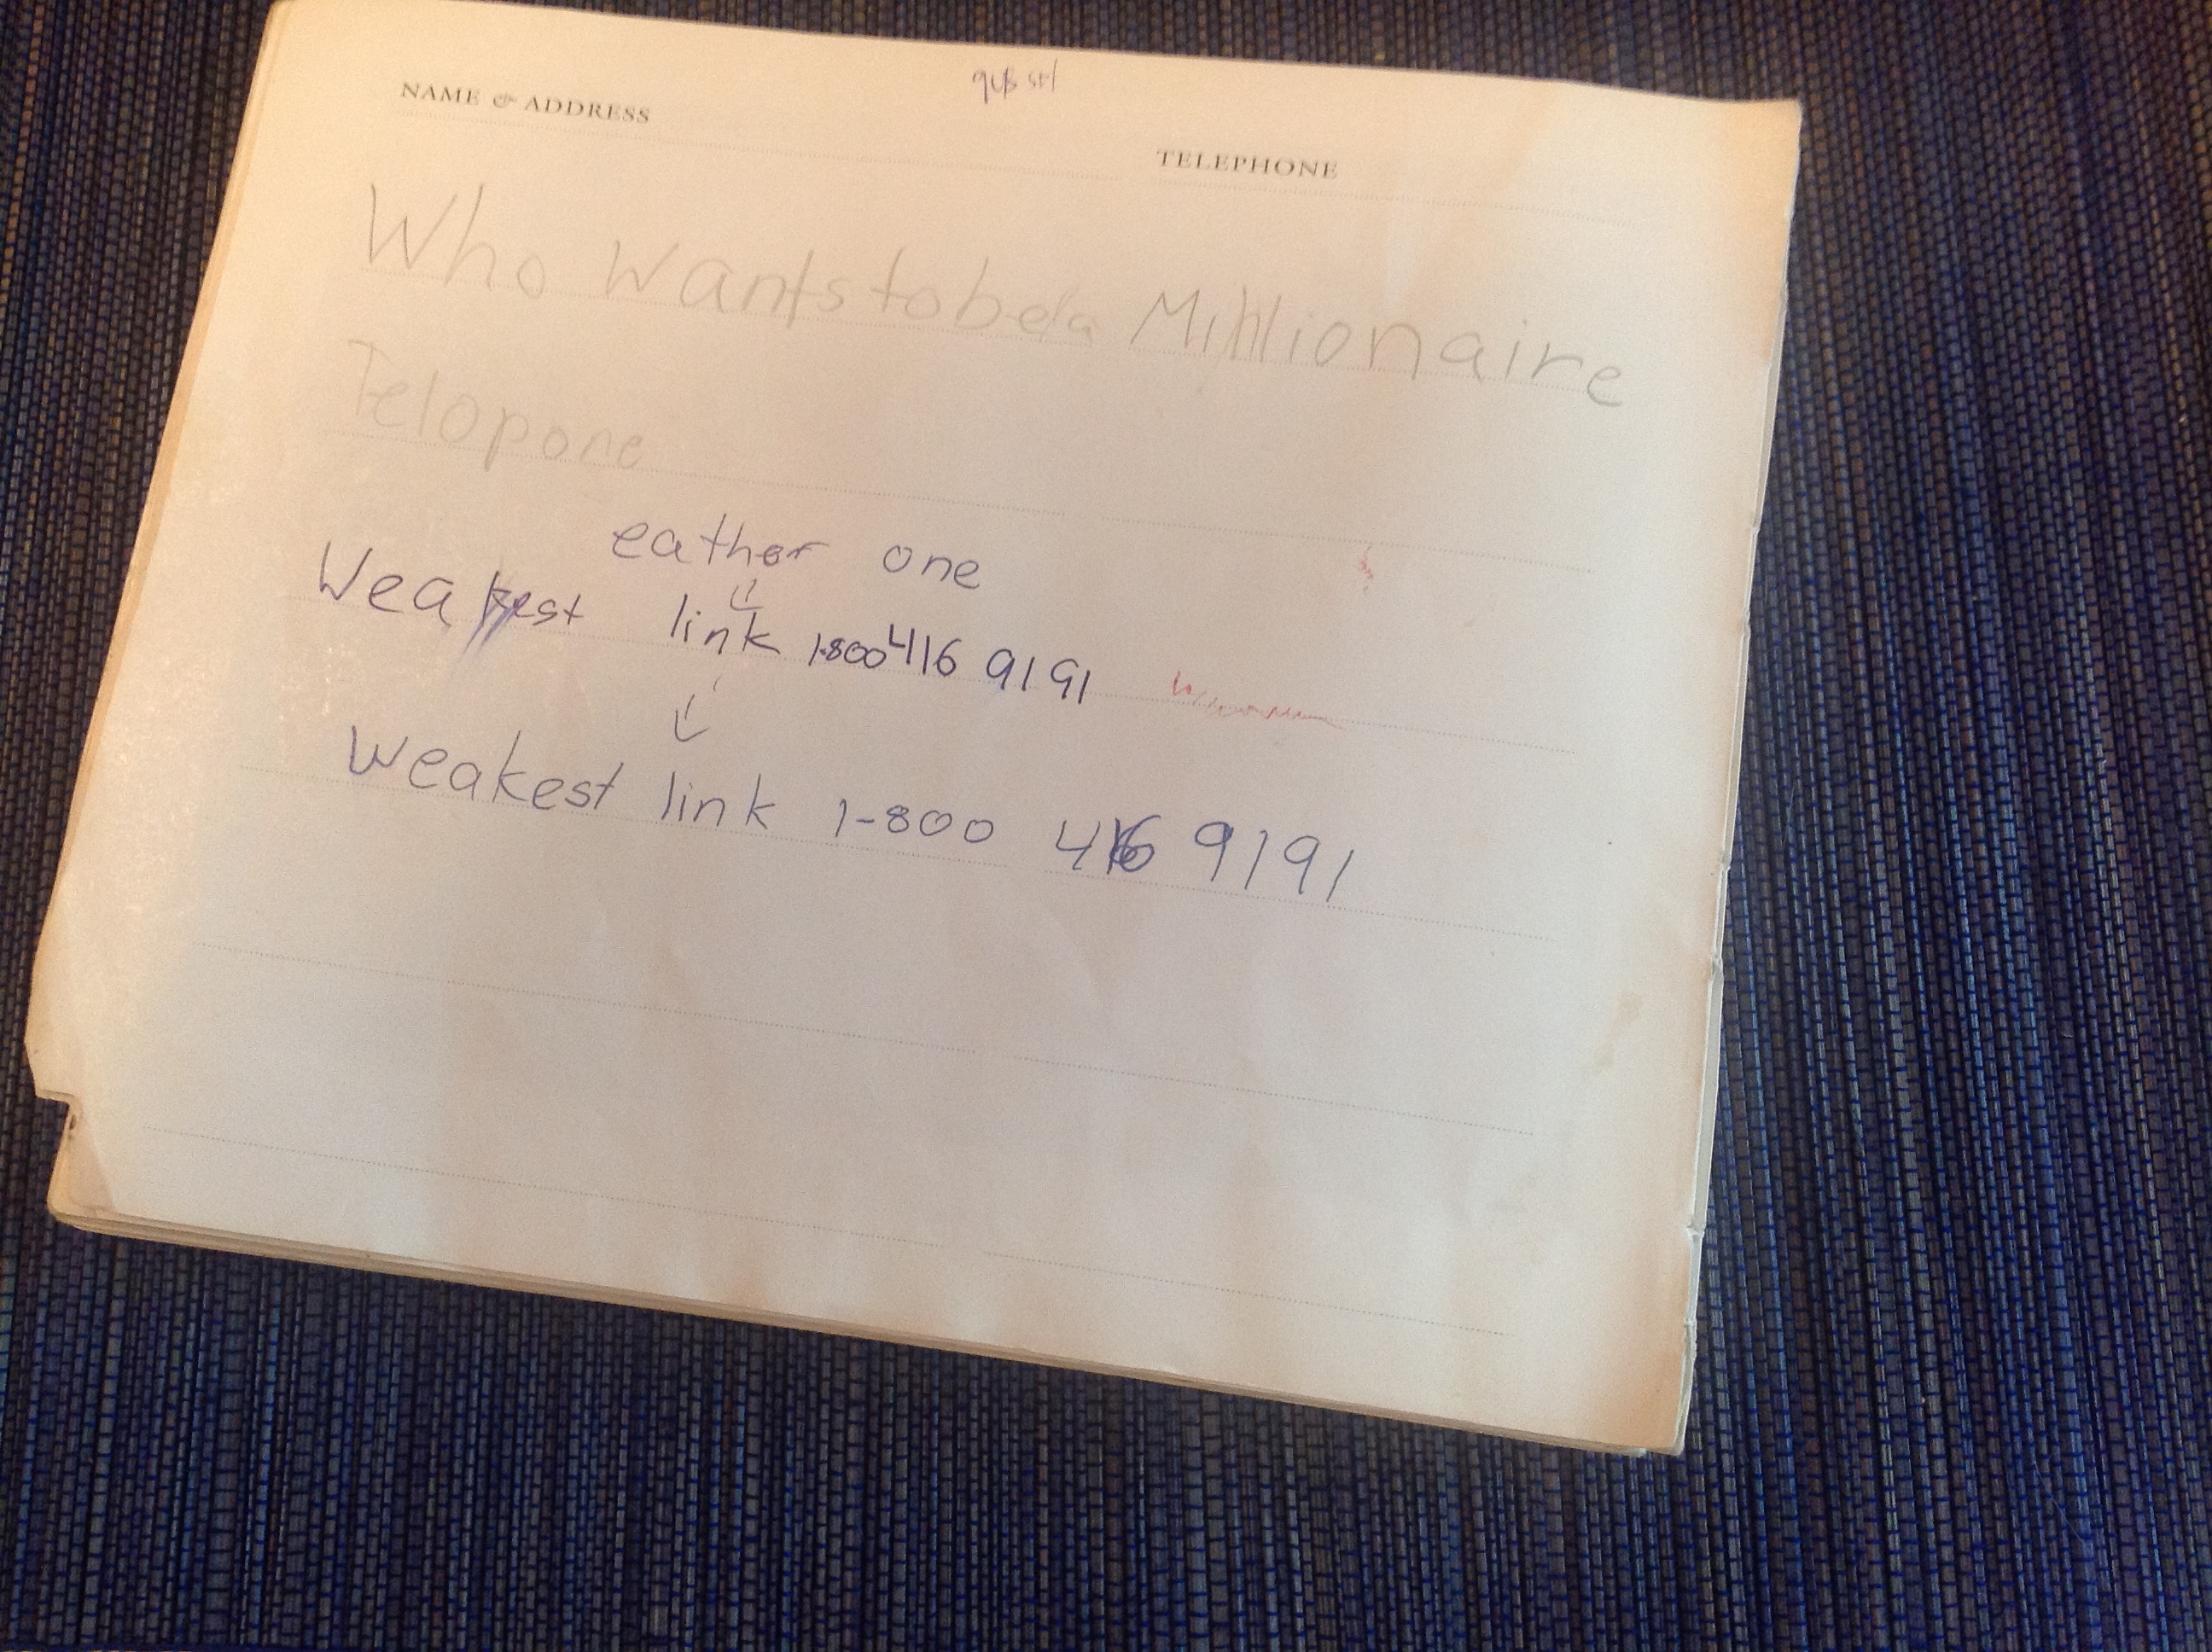 NAME & ADDRESS
TELEPHONE
Who Wants to be a Millionaire
Telopone
eather one
Weakest link 1-800 416 9191
weakest link 1-800 416 9191